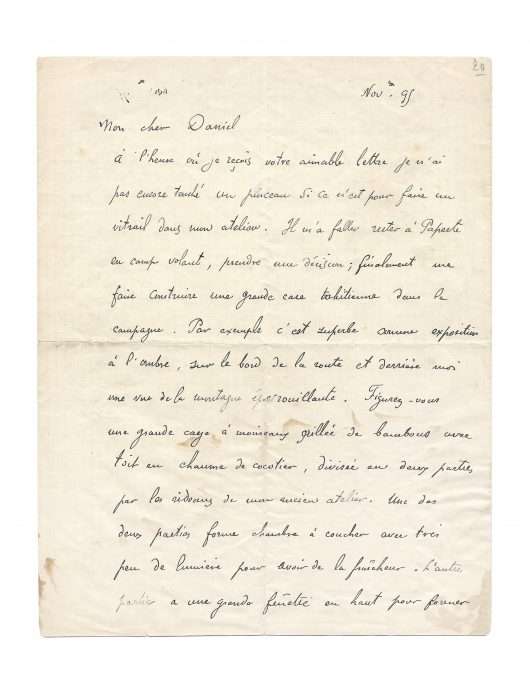 20
Nov.re 95
Mon cher Daniel
À l'heure où je reçois votre aimable lettre je n'ai
pas encore touché un pinceau si ce n'est pour faire un
vitrail dans mon atelier. Il m'a fallu rester à Papeete
en camp volant, prendre une décision ; finalement me
faire construire une grande case tahitienne dans la
campagne. Par exemple c'est superbe comme exposition
à l'ombre, sur le bord de la route et derrière moi
une vue de la montagne épatrouillante. Figurez-vous
une grande cage à moineaux grillée de bambous avec
toit en chaume de cocotier, divisée en deux parties
par les rideaux de mon ancien atelier. Une des
deux parties forme chambre à coucher avec très
peu de lumière pour avoir de la fraîcheur. L'autre
partie a une grande fenêtre en haut pour former